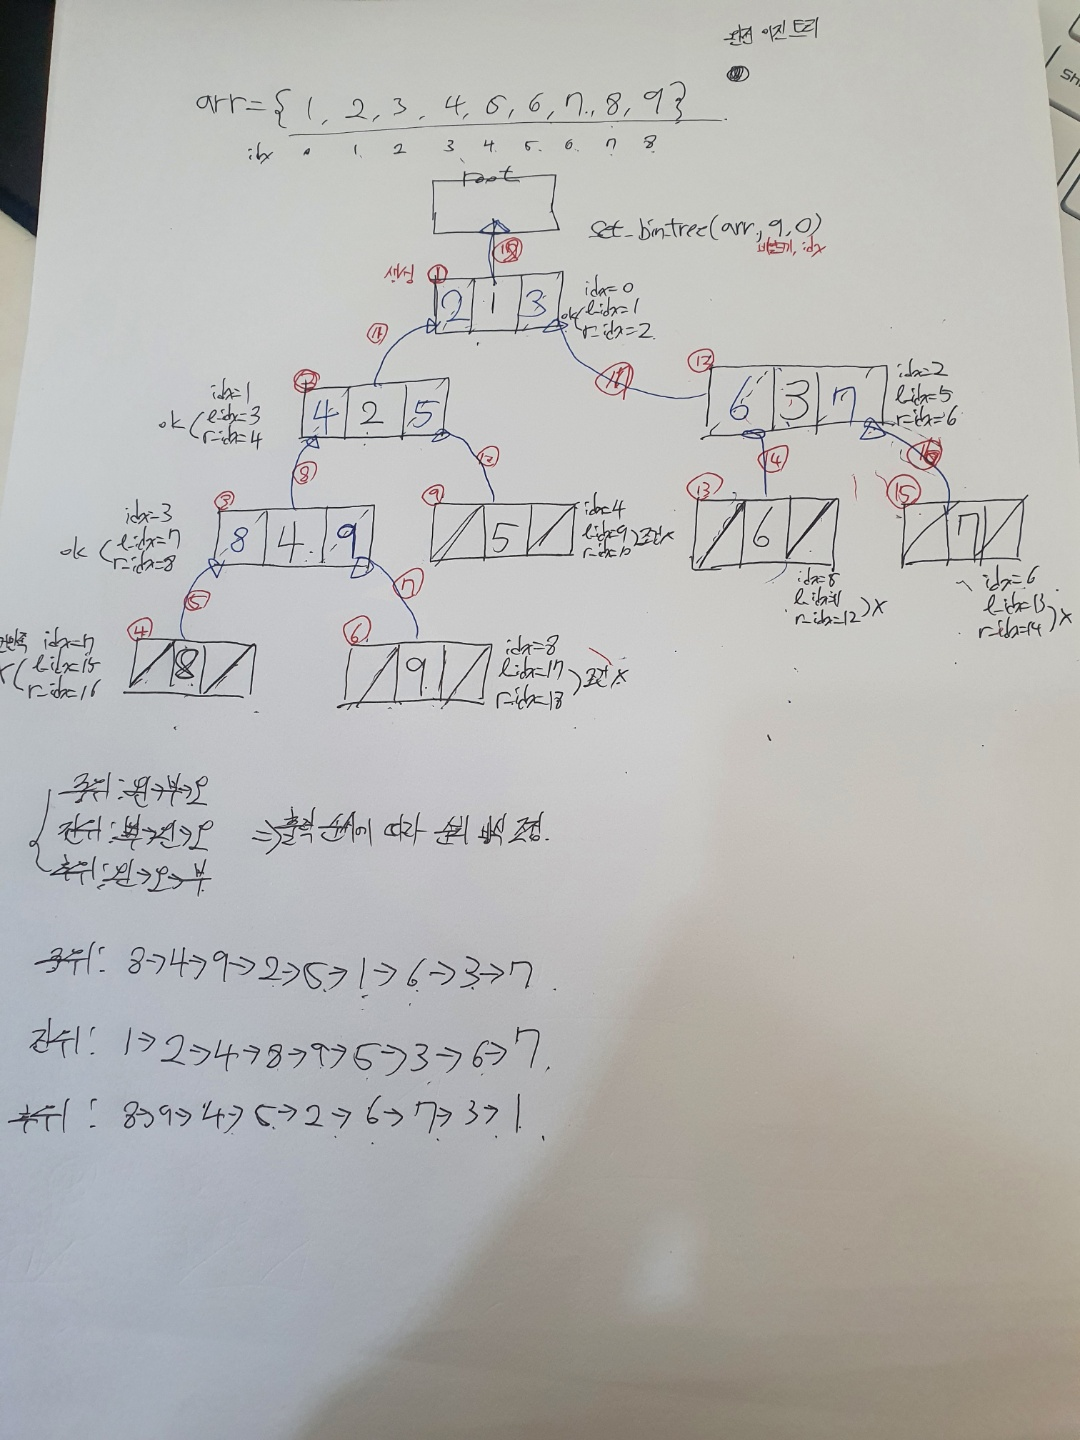 완전 이진 트리
arr={1, 2, 3, 4, 5, 6, 7, 8, 9}
idx 0 1 2 3 4 5 6 7 8
root
set_bintree(arr, 9, 0)
idx
생성 ①
2 1 3
idx=0
l-idx=1
r-idx=2
ok
②
4 2 5
idx=1
l-idx=3
r-idx=4
ok
⑫
6 3 7
idx=2
l-idx=5
r-idx=6
⑧
⑭
③
8 4 9
idx=3
l-idx=7
r-idx=8
ok
⑨
5
idx=4
l-idx=9
r-idx=10
조건x
⑬
6
idx=5
l-idx=11
r-idx=12
x
⑮
7
idx=6
l-idx=13
r-idx=14
x
⑤
⑦
④
8
idx=7
l-idx=15
r-idx=16
⑥
9
idx=8
l-idx=17
r-idx=18
조건x
중위:왼→부→오
전위:부→왼→오 ⇒출력 순서에 따라 순회 방식 조정.
후위:왼→오→부
중위: 8→4→9→2→5→1→6→3→7
전위: 1→2→4→8→9→5→3→6→7
후위: 8→9→4→5→2→6→7→3→1